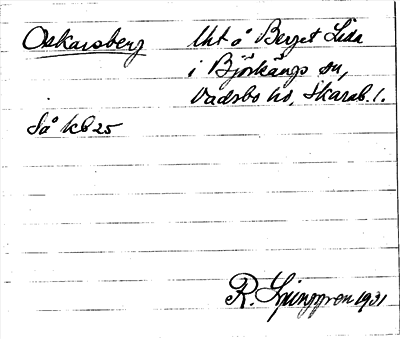 Oskarsberg Uht å Berget Lida
i Björkängs sn,
Vadsbo hd, Skarab. l.
Så kb 25
R. Ljunggren 1931